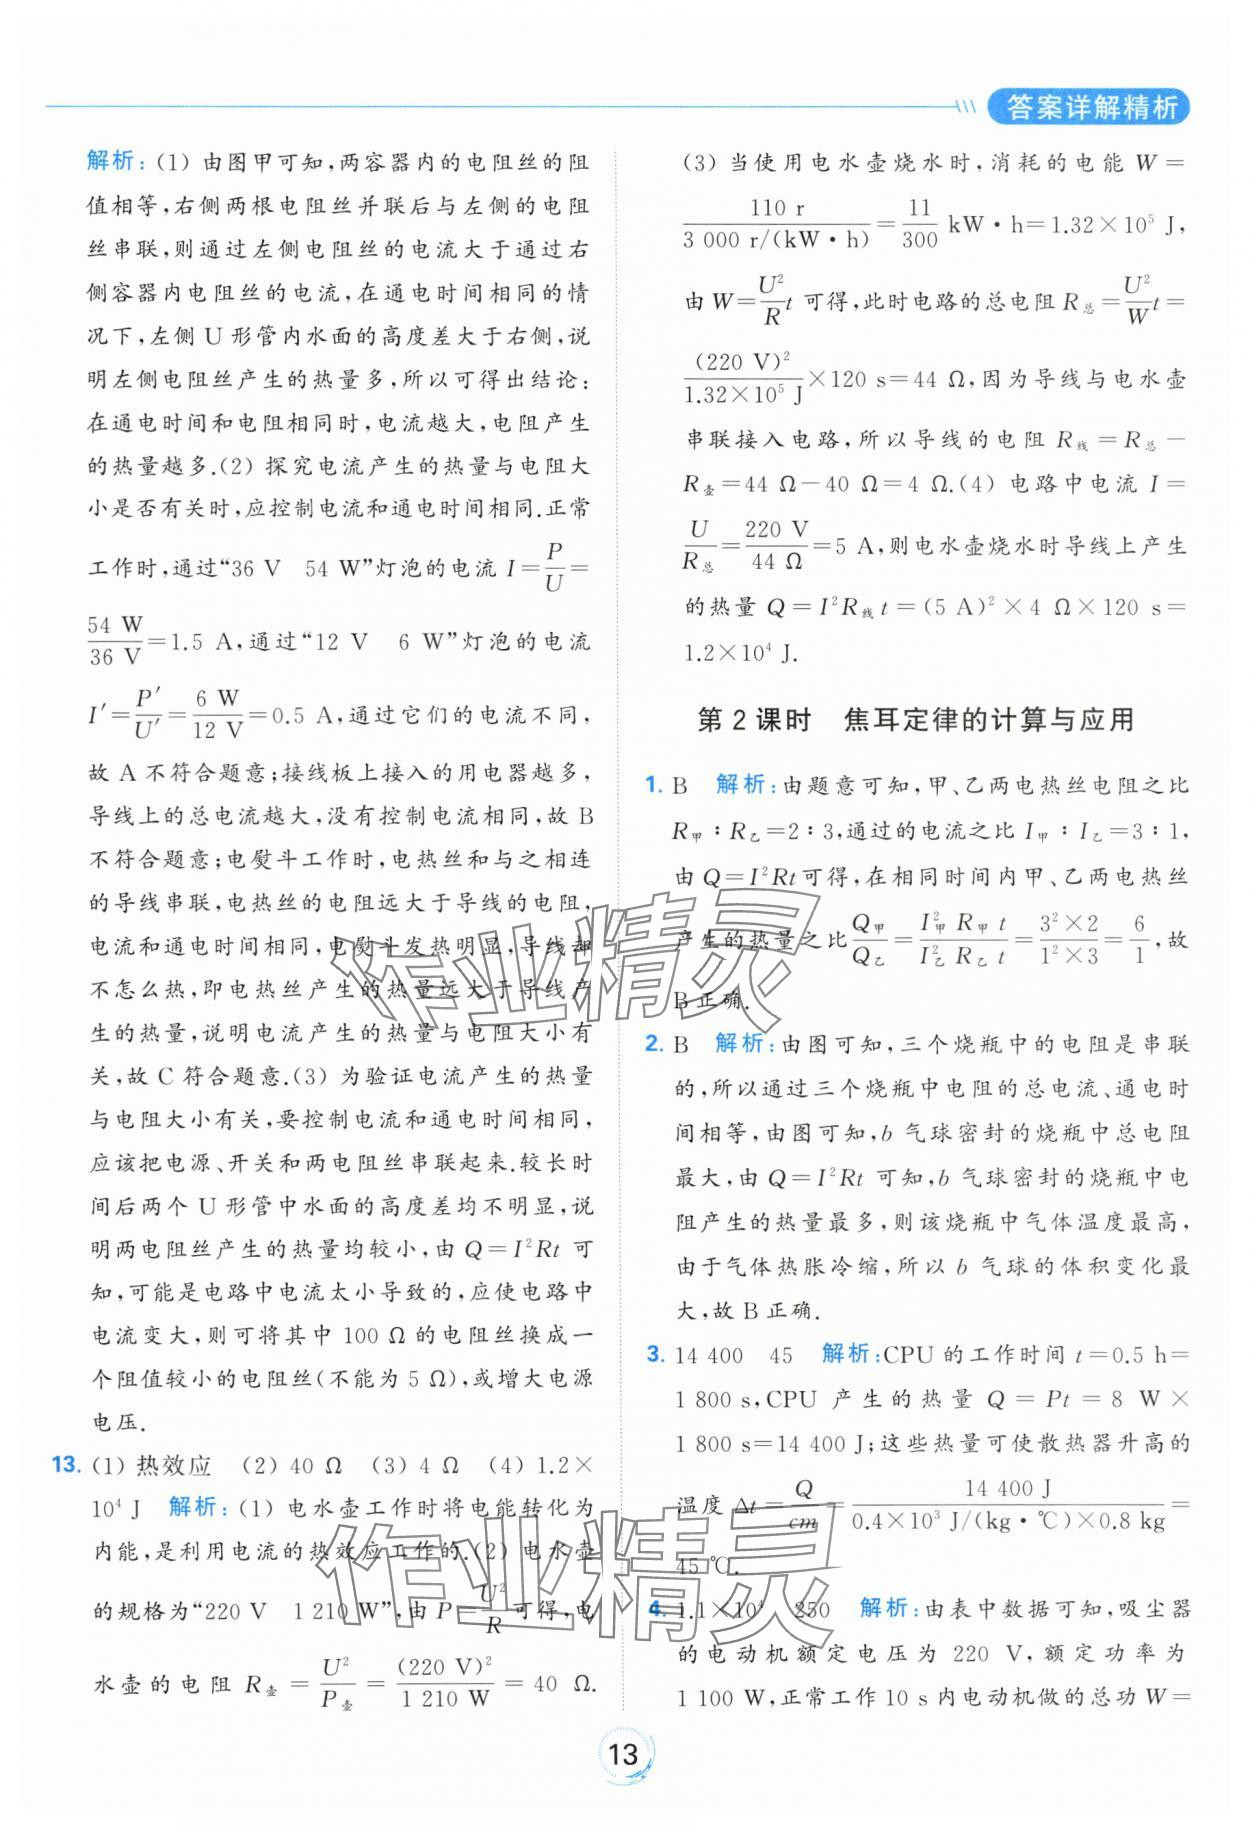 答案详解精析
解析:(1) 由图甲可知,两容器内的电阻丝的阻
值相等,右侧两根电阻丝并联后与左侧的电阻
丝串联,则通过左侧电阻丝的电流大于通过右
侧容器内电阻丝的电流,在通电时间相同的情
况下,左侧 U 形管内水面的高度差大于右侧,说
明左侧电阻丝产生的热量多,所以可得出结论:
在通电时间和电阻相同时,电流越大,电阻产生
的热量越多.(2) 探究电流产生的热量与电阻大
小是否有关时,应控制电流和通电时间相同.正常
工作时,通过“36 V 54 W”灯泡的电流 I=P/U=
54 W/36 V=1.5 A,通过“12 V 6 W”灯泡的电流
I′=P′/U′=6 W/12 V=0.5 A,通过它们的电流不同,
故 A 不符合题意;接线板上接入的用电器越多,
导线上的总电流越大,没有控制电流相同,故 B
不符合题意;电熨斗工作时,电热丝和与之相连
的导线串联,电热丝的电阻远大于导线的电阻,
电流和通电时间相同,电熨斗发热明显,导线却
不怎么热,即电热丝产生的热量远大于导线产
生的热量,说明电流产生的热量与电阻大小有
关,故 C 符合题意.(3) 为验证电流产生的热量
与电阻大小有关,要控制电流和通电时间相同,
应该把电源、开关和两电阻丝串联起来.较长时
间后两个 U 形管中水面的高度差均不明显,说
明两电阻丝产生的热量均较小,由 Q=I²Rt 可
知,可能是电路中电流太小导致的,应使电路中
电流变大,则可将其中 100 Ω 的电阻丝换成一
个阻值较小的电阻丝(不能为 5 Ω),或增大电源
电压.
13. (1) 热效应 (2) 40 Ω (3) 4 Ω (4) 1.2×
10⁴ J 解析:(1) 电水壶工作时将电能转化为
内能,是利用电流的热效应工作的.(2) 电水壶
的规格为“220 V 1 210 W”,由 P=U²/R可得,电
水壶的电阻 R壶=U²/P壶=(220 V)²/1 210 W=40 Ω.
(3) 当使用电水壶烧水时,消耗的电能 W=
110 r/3 000 r/(kW·h)=11/300 kW·h=1.32×10⁵ J,
由 W=U²/R t 可得,此时电路的总电阻 R总=U²/W t=
(220 V)²/1.32×10⁵ J×120 s=44 Ω,因为导线与电水壶
串联接入电路,所以导线的电阻 R线=R总-
R壶=44 Ω-40 Ω=4 Ω.(4) 电路中电流 I=
U/R总=220 V/44 Ω=5 A,则电水壶烧水时导线上产生
的热量 Q=I²R线 t=(5 A)²×4 Ω×120 s=
1.2×10⁴ J.
第 2 课时 焦耳定律的计算与应用
1. B 解析:由题意可知,甲、乙两电热丝电阻之比
R甲∶R乙=2∶3,通过的电流之比 I甲∶I乙=3∶1,
由 Q=I²Rt可得,在相同时间内甲、乙两电热丝
产生的热量之比Q甲/Q乙=I²甲 R甲 t/I²乙 R乙 t=3²×2/1²×3=6/1,故
B 正确.
2. B 解析:由图可知,三个烧瓶中的电阻是串联
的,所以通过三个烧瓶中电阻的总电流、通电时
间相等,由图可知,b 气球密封的烧瓶中总电阻
最大,由 Q=I²Rt 可知,b 气球密封的烧瓶中电
阻产生的热量最多,则该烧瓶中气体温度最高,
由于气体热胀冷缩,所以 b 气球的体积变化最
大,故 B 正确.
3. 14 400 45 解析:CPU 的工作时间 t=0.5 h=
1 800 s,CPU 产生的热量 Q=Pt=8 W×
1 800 s=14 400 J;这些热量可使散热器升高的
温度 Δt=Q/cm=14 400 J/0.4×10³ J/(kg·℃)×0.8 kg=
45 ℃.
4. 1.1×10⁴ 250 解析:由表中数据可知,吸尘器
的电动机额定电压为 220 V,额定功率为
1 100 W,正常工作 10 s 内电动机做的总功 W=
作业精灵
作业精灵
13